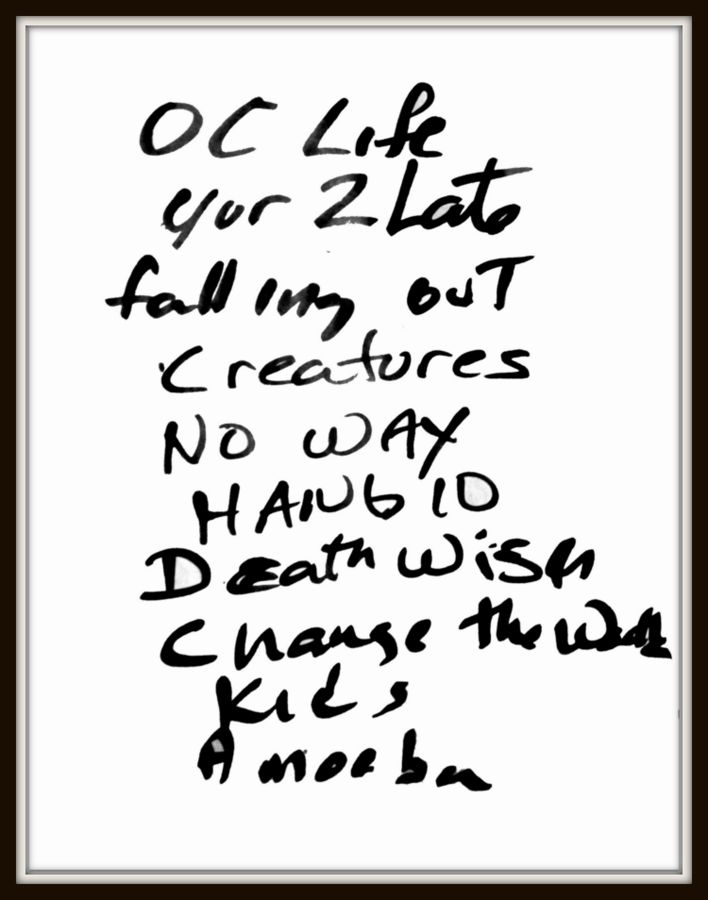 OC Life
Yur 2 Late
falling out
Creatures
NO WAY
HANG 10
Death Wish
Change the World
Kids
Amoeba